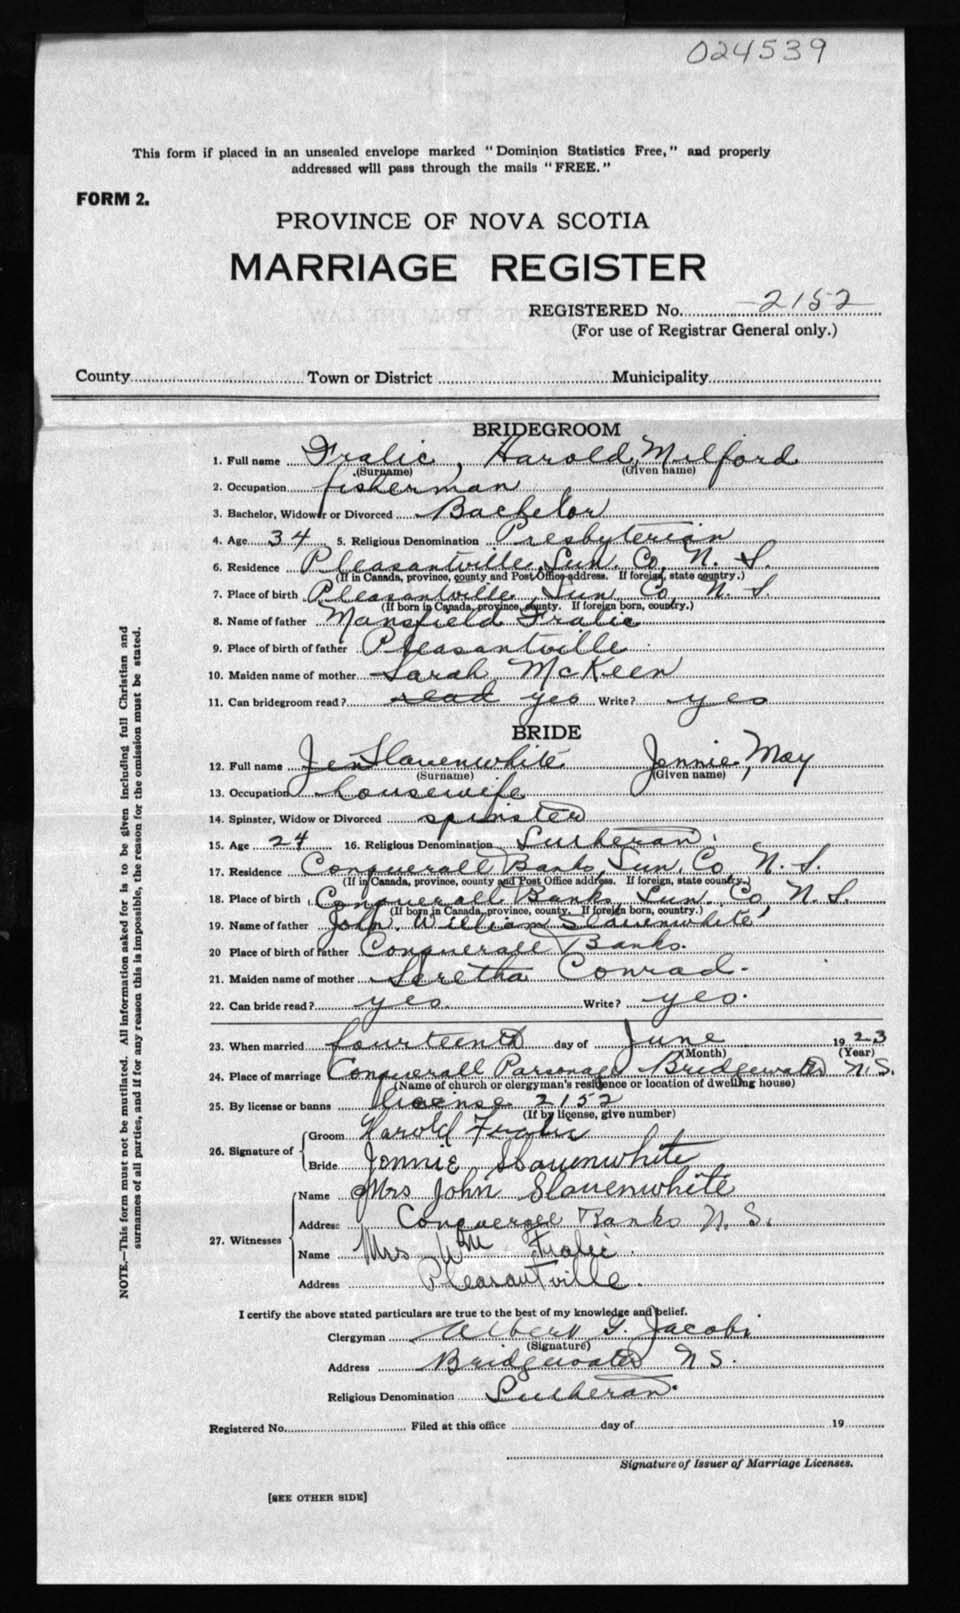 024539
This form if placed in an unsealed envelope marked "Dominion Statistics Free," and properly
addressed will pass through the mails "FREE."
FORM 2.
PROVINCE OF NOVA SCOTIA
MARRIAGE REGISTER
REGISTERED No. 2152
(For use of Registrar General only.)
County Town or District Municipality
BRIDEGROOM
1. Full name Fralic, Harold Milford
(Surname) (Given name)
2. Occupation fisherman
3. Bachelor, Widower or Divorced Bachelor
4. Age 34 5. Religious Denomination Presbyterian
6. Residence Pleasantville, Lun. Co. N. S.
(If in Canada, province, county and Post Office address. If foreign, state country.)
7. Place of birth Pleasantville, Lun. Co. N. S.
(If born in Canada, province, county. If foreign born, country.)
8. Name of father Mansfield Fralic
9. Place of birth of father Pleasantville
10. Maiden name of mother Sarah McKeen
11. Can bridegroom read? read yes Write? yes
BRIDE
12. Full name Jen Slauenwhite Jennie May
(Surname) (Given name)
13. Occupation housewife
14. Spinster, Widow or Divorced spinster
15. Age 24 16. Religious Denomination Lutheran
17. Residence Conquerall Banks, Lun. Co. N. S.
(If in Canada, province, county and Post Office address. If foreign, state country.)
18. Place of birth Conquerall Banks, Lun. Co. N. S.
(If born in Canada, province, county. If foreign born, country.)
19. Name of father John William Slauenwhite
20 Place of birth of father Conquerall Banks.
21. Maiden name of mother Seretha Conrad.
22. Can bride read? yes. Write? yes.
23. When married fourteenth day of June 1923
(Month) (Year)
24. Place of marriage Conquerall Parsonage Bridgewater N.S.
(Name of church or clergyman's residence or location of dwelling house)
25. By license or banns license 2152
(If by license, give number)
26. Signature of Groom Harold Fralic
Bride Jennie Slauenwhite
27. Witnesses Name Mrs John Slauenwhite
Address Conquerall Banks N. S.
Name Mrs Wm Fralic.
Address Pleasantville.
I certify the above stated particulars are true to the best of my knowledge and belief.
Clergyman Albert G. Jacobi
(Signature)
Address Bridgewater N S.
Religious Denomination Lutheran.
Registered No. Filed at this office day of 19
Signature of Issuer of Marriage Licenses.
[SEE OTHER SIDE]
NOTE.—This form must not be mutilated. All information asked for is to be given including full Christian and
surnames of all parties, and if for any reason this is impossible, the reason for the omission must be stated.